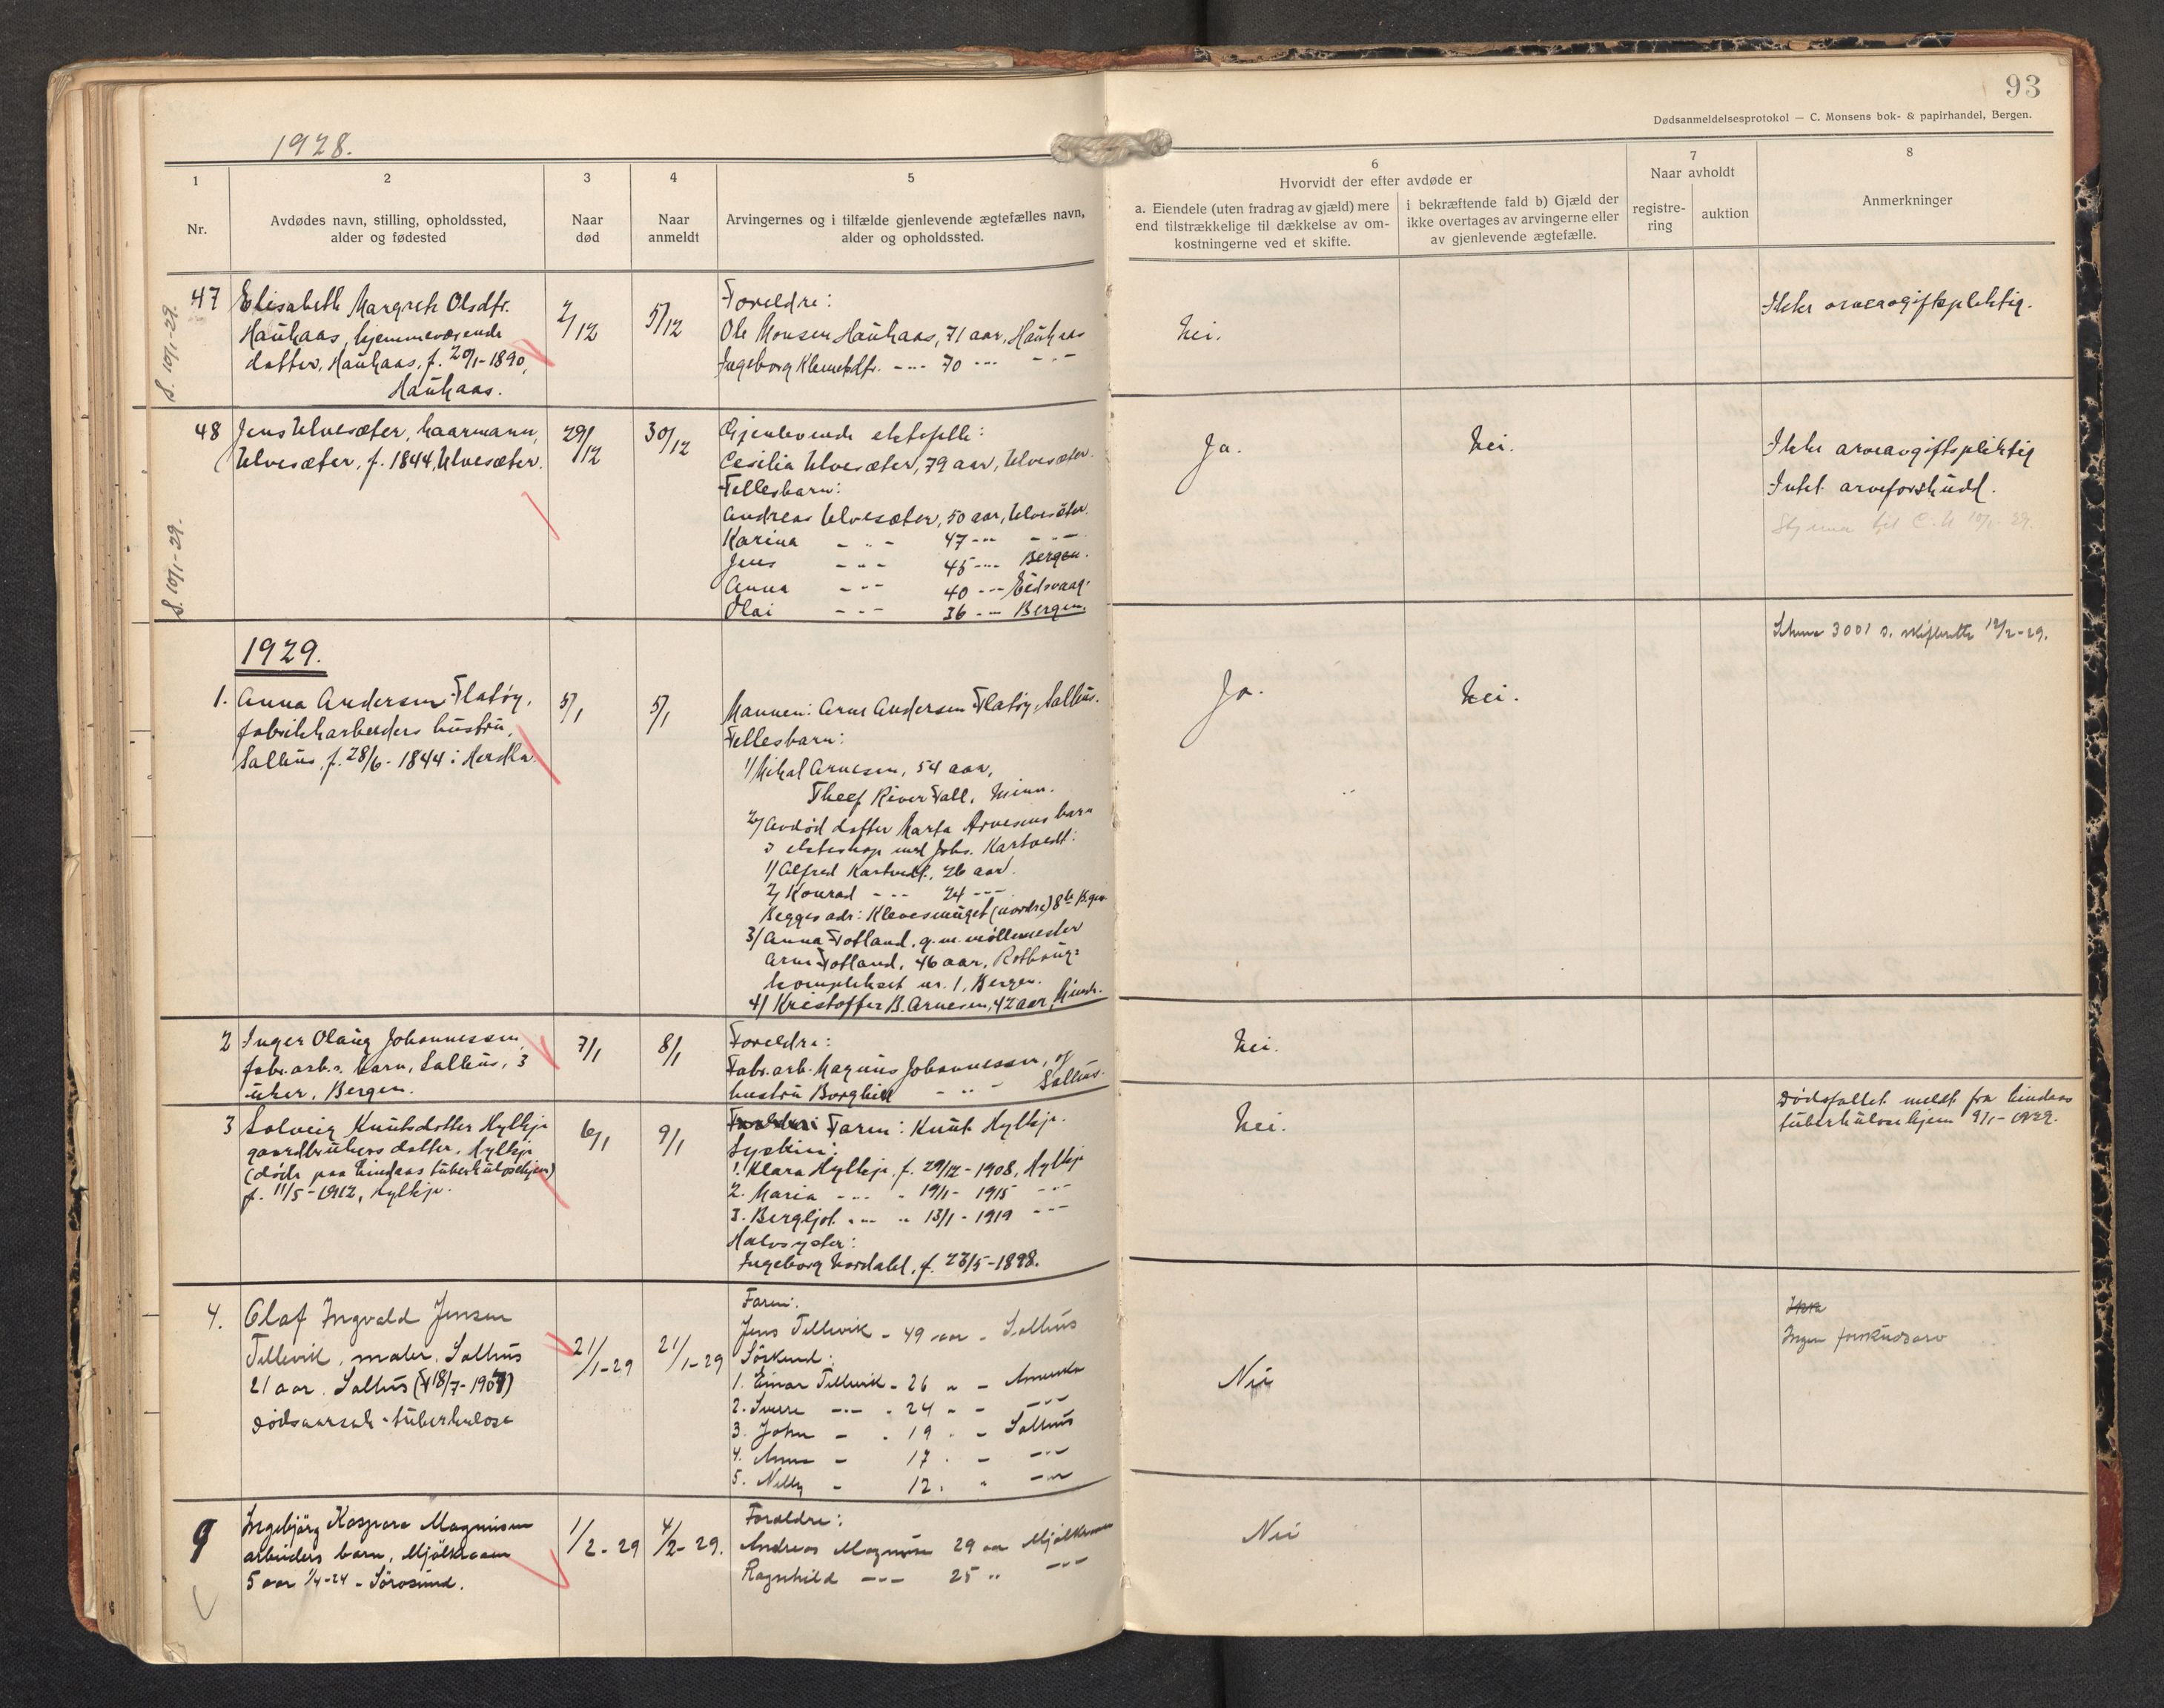 93
Dødsanmeldelsesprotokol — C. Monsens bok- & papirhandel, Bergen.
1928.
1
Nr.
2
Avdødes navn, stilling, opholdssted,
alder og fødested
3
Naar
død
4
Naar
anmeldt
5
Arvingernes og i tilfælde gjenlevende ægtefælles navn,
alder og opholdssted.
6
Hvorvidt der efter avdøde er
a. Eiendele (uten fradrag av gjæld) mere
end tilstrækkelige til dækkelse av om-
kostningerne ved et skifte.
i bekræftende fald b) Gjæld der
ikke overtages av arvingerne eller
av gjenlevende ægtefælle.
7
Naar avholdt
registre-
ring
auktion
8
Anmerkninger
S. 10/1-29.
47
Elisabeth Margrete Olsdtr.
Hauhaas, hjemmeværende
datter, Hauhaas, f. 20/1-1890,
Hauhaas.
2/12
5/12
Foreldre:
Ole Monsen Hauhaas, 71 aar, Hauhaas
Ingeborg Klemetsdtr. -"- 70 -"- -"-
Nei.
Ikke arveavgiftspliktig.
S. 10/1-29.
48
Jens Ulvesæter, kaarmann,
Ulvesæter, f. 1844, Ulvesæter.
29/12
30/12
Gjenlevende ektefelle:
Cesilia Ulvesæter, 79 aar, Ulvesæter.
Fellesbarn:
Andreas Ulvesæter, 50 aar, Ulvesæter.
Karina -"- 47 -"- -"-
Jens -"- 45 -"- Bergen.
Anna -"- 40 -"- Eidsvaag.
Olai -"- 36 -"- Bergen.
Ja.
Nei.
Ikke arveavgiftspliktig
Intet arveforskudd.
1929.
1.
Anna Andersen Flatøy,
fabrikkarbeiders hustru,
Salhus, f. 28/6-1844 i Herdla.
5/1
5/1
Mannen: Arne Andersen Flatøy, Salhus.
Fellesbarn:
1/ Mikal Arnesen, 54 aar,
Theef River Fall, Minn.
2/ Avdød datter Marta Arnesens barn
i ekteskap med Johs. Kartveit:
1/ Alfred Kartveit, 26 aar.
2/ Konrad -"- 24 -"-
Begges adr: Klevesmuget (nordre) 8 Bergen
3/ Anna Totland, g.m. møllemester
Arne Totland, 46 aar, Rothaug-
komplekset nr. 1, Bergen.
4/ Kristoffer B. Arnesen, 42 aar,
Ja.
Nei.
Skema 3001 s. skifterette 12/2-29.
2
Inger Olaug Johannessen,
fabr.arb.s barn, Salhus, 3
uker, Bergen.
7/1
8/1
Foreldre:
Fabr.arb. Magnus Johannessen, og
hustru Borghild -"- Salhus.
Nei.
3
Solveig Knutsdotter Hylkje
gaardbrukers datter, Hylkje
(døde paa Lindaas tuberkulosehjem)
f. 11/5-1912, Hylkje.
6/1
9/1
Foreldre: Faren: Knut Hylkje.
Syskin:
1. Klara Hylkje, f. 29/12-1908, Hylkje
2. Maria -"- " 19/1-1915 -"-
3. Bergljot -"- " 13/1-1919 -"-
Halvsyster:
Ingeborg Nordahl, f. 23/5-1898.
Nei.
Dødsfallet meldt fra Lindaas
tuberkulosehjem 9/1-1929.
4.
Olaf Ingvald Jensen
Tellevik, maler, Salhus
21 aar. Salhus (f 18/7-1907)
Dødsaarsak - tuberkulose
21/1-29
21/1-29
Faren:
Jens Tellevik - 49 aar - Salhus
Söskend:
1. Einar Tellevik - 26 " - Amerika
2. Sverre -"- - 24 " - -"-
3. John - " 19 " - Salhus
4. Anna - 17 " - -"-
5. Nelly - 12 " " -"-
Nei
Ingen forskudsarv
9
Ingebjörg Kaspara Magnusen
arbeiders barn, Mjölkeraaen
5 aar 1/4-24 - Sörosund.
1/2-29
4/2-29.
Foraldre:
Andreas Magnusen 29 aar Mjölkeraaen
Ragnhild -"- 25 " -"-
Nei